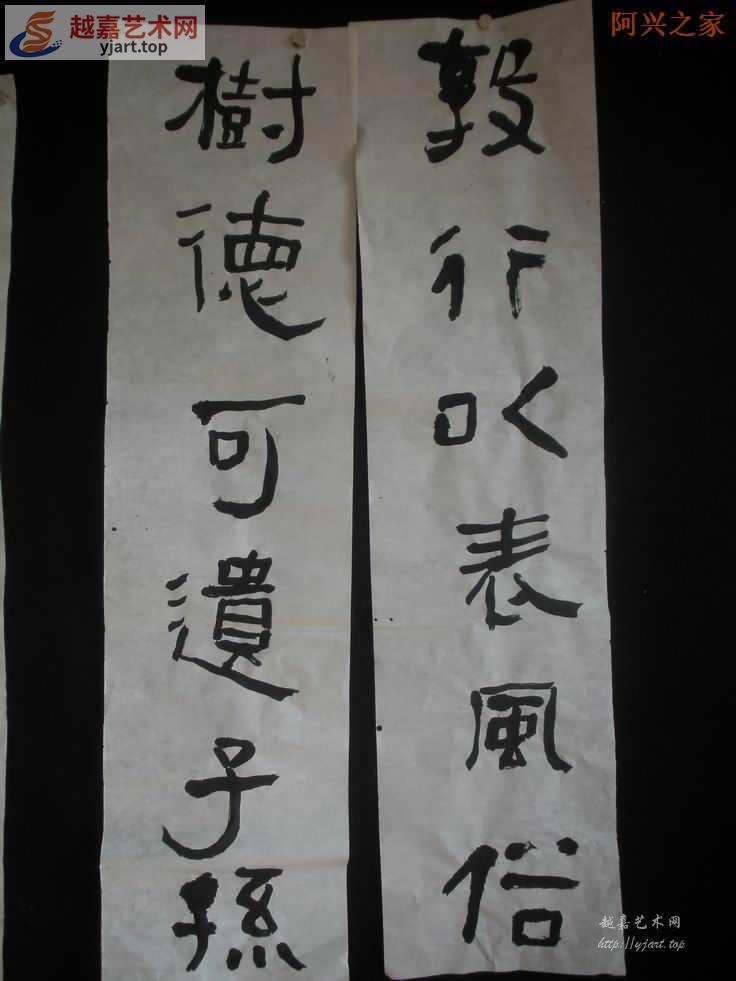 越嘉艺术网
yjart.top
阿兴之家
敦行以表風俗
樹德可遺子孫
越嘉艺术网
http://yjart.top